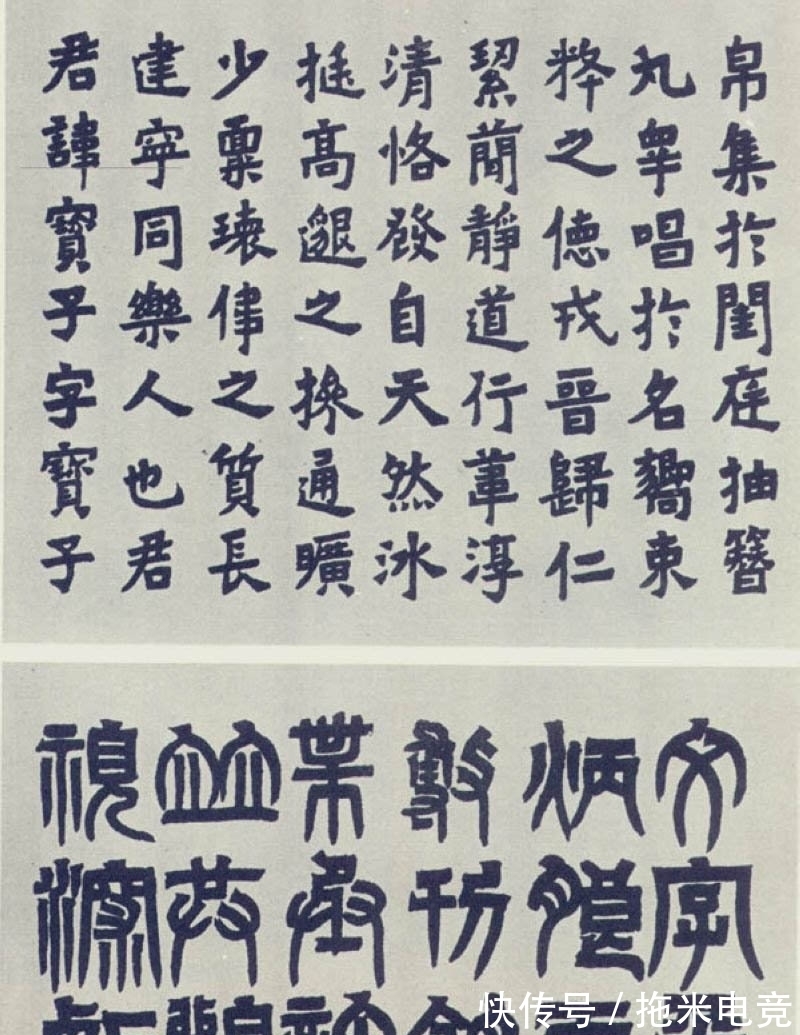 君諱寶子字寶子
建寧同樂人也君
少稟瓌偉之質長
挺高邈之操通曠
清恪發自天然冰
絜簡靜道行葦淳
粹之德戎晉歸仁
九皋唱於名嚮束
帛集於閨庭抽簪
文字
炳朖
刊
並共觀
視深
快传号/拖米电竞